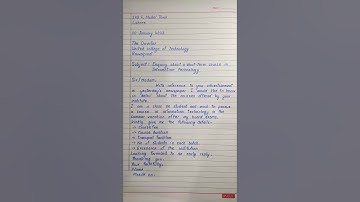 240 E, Model Town
Lahore
The Director
United college of Technology
Rawalpindi
Subject : Inquiry about a short-term course in
Information Technology
Sir/Madam,
With reference to your advertisement
in yesterday's newspaper I would like to know
in detail about the courses offered by your
institute.
I am a class XII student and want to pursue
a course in Information Technology in the
summer vacation after my board exams.
Kindly give me the following details:
→ Course Fee
→ Course duration
→ Transport facilities
→ No. of students in each batch
→ of the institution.
Looking forward to an early reply.
Thanking you,
Your faithfully,
Name
Mobile no: